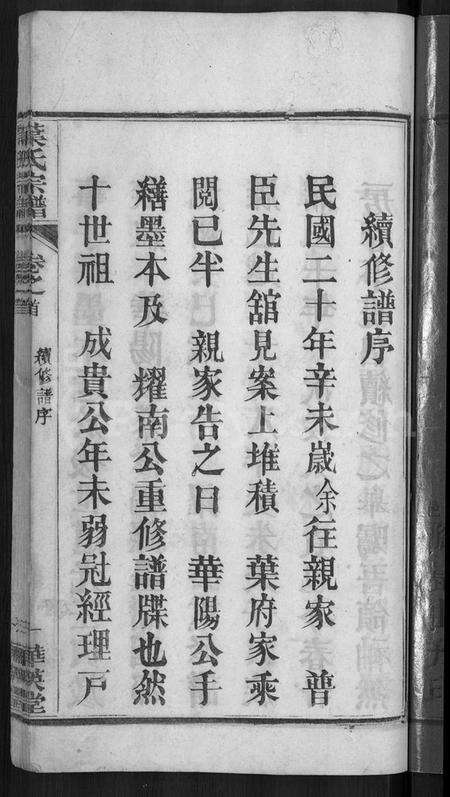 續修譜序
民國二十年辛未歲余往親家 普
臣先生舘見案上堆積 葉府家乘
閱已半 親家告之曰 華陽公手
繕墨本及 燿南公重修譜牒也然
十世祖 成貴公年未弱冠經理戶
葉氏宗譜 卷之首 續修譜序 一